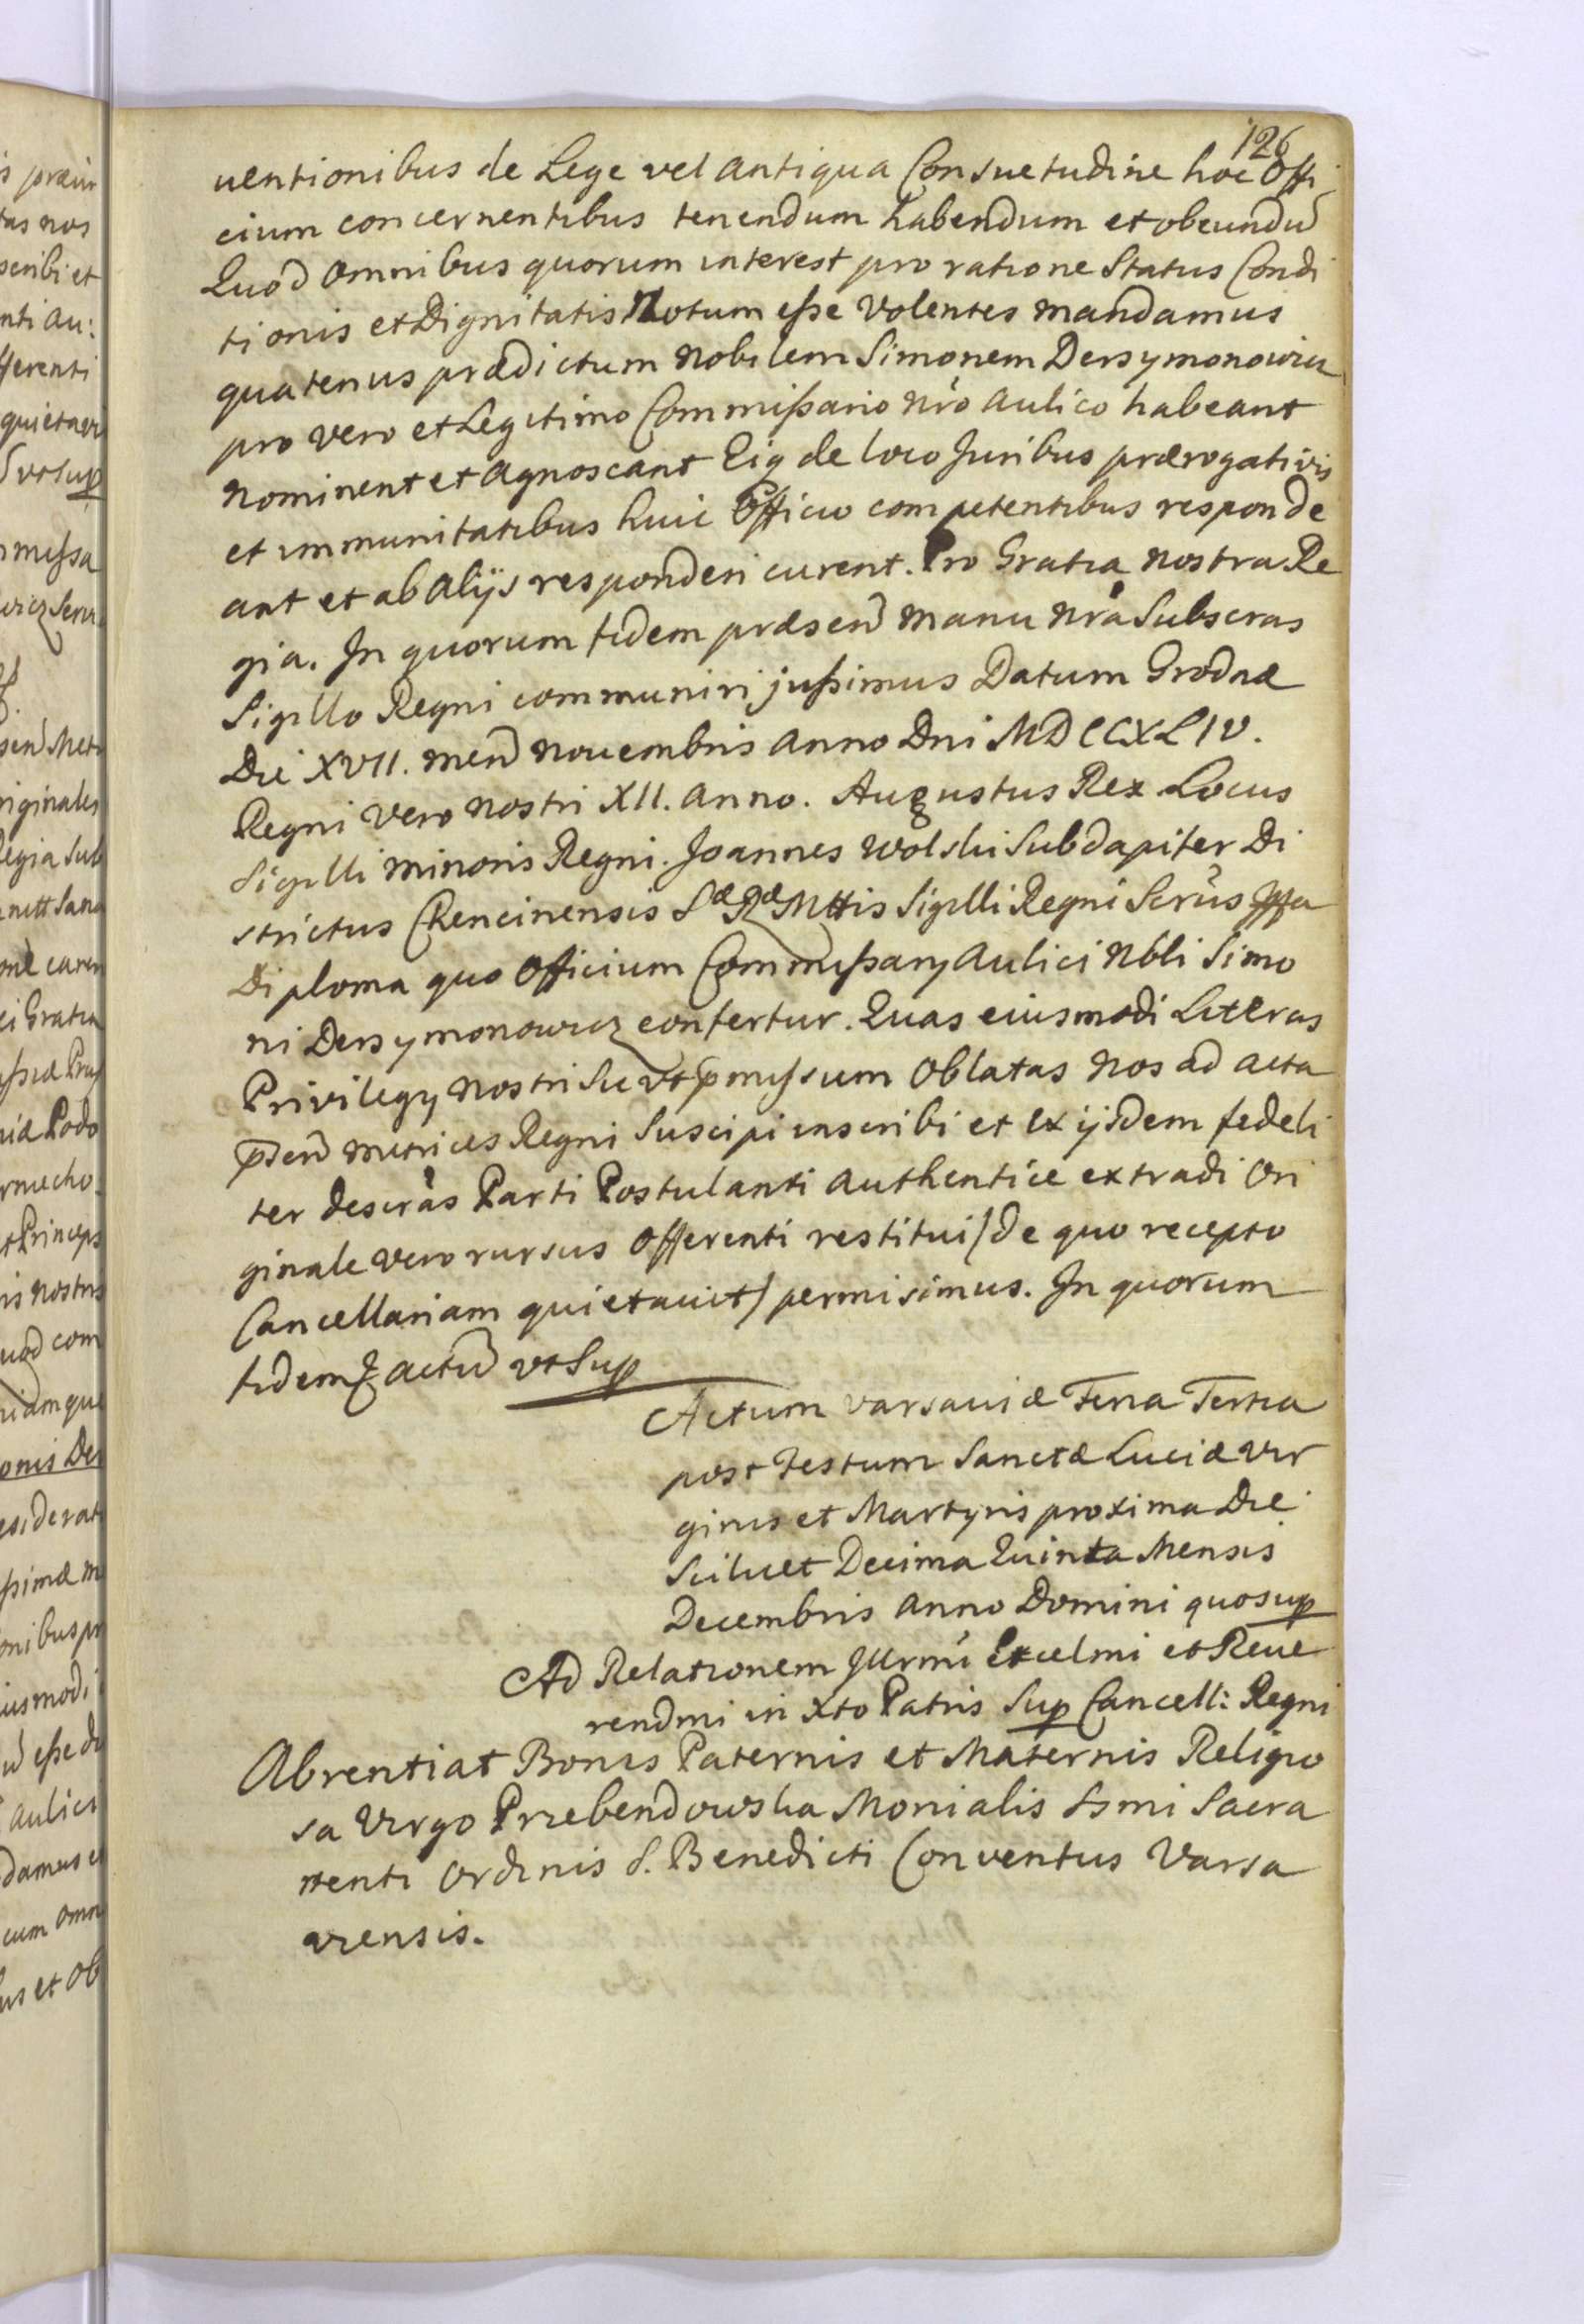 126
uentionibus de Lege vel antiqua Consuetudine hoc Offi
cium concernentibus tenendum habendum et obeundu̅
Quod Omnibus quorum interest pro ratione Status Condi
tionis et Dignitatis Notum esse Volentes mandamus
quatenus prædictum Nobilem Simonem Dersymonowicz
pro vero et Legitimo Commissario nr̃o Aulico habeant
nominent et agnoscant Eiq de loco Juribus prærogativis
et immunitatibus huic Officio competentibus responde
ant et ab Alijs responderi curent. Pro Gratia nostra Re
gia. In quorum fidem præsen̅ manu nr̃a Subscras
Sigillo Regni communiri jussimus Datum Grodnæ
Die XVII. men̅ Novembris Anno Dni MDCCXLIV.
Regni Vero nostri XII. Anno. Augustus Rex Locus
Sigilli minoris Regni. Joannes Wolski Subdapifer Di
strictus Chencinensis Sæ Ræ Mttis Sigilli Regni Scrũs
Diploma quo Officium Commissarij Aulici Nbli Simo
ni Dersymonowicz confertur. Quas eiusmodi Literas
Privilegij Nostri Sic vt p̅missum Oblatas Nos ad acta
p̅sen̅ metrices Regni Suscipi inscribi et ex ijsdem fideli
ter descr̃as Parti Postulanti Authentice extradi Ori
ginale vero rursus Offerenti restitui / de quo recepto
Cancellariam quietavit / permisimus. In quorum
fidem & actu̅ vt Sup
Actum Varsaviæ Feria Tertia
post Festum Sanctæ Luciæ Vir
ginis et Martyris proxima Die
Scilicet Decima Quinta Mensis
Decembris Anno Domini quo sup
Ad Relationem Jllrmi Excelmi et Reve
rendmi in Xto Patris Sup Cancell: Regni
Abrentiat Bonis Paternis et Maternis Religio
sa Virgo Przebendowska Monialis Ssmi Sacra
menti Ordinis S. Benedicti Conventus Varsa
viensis.